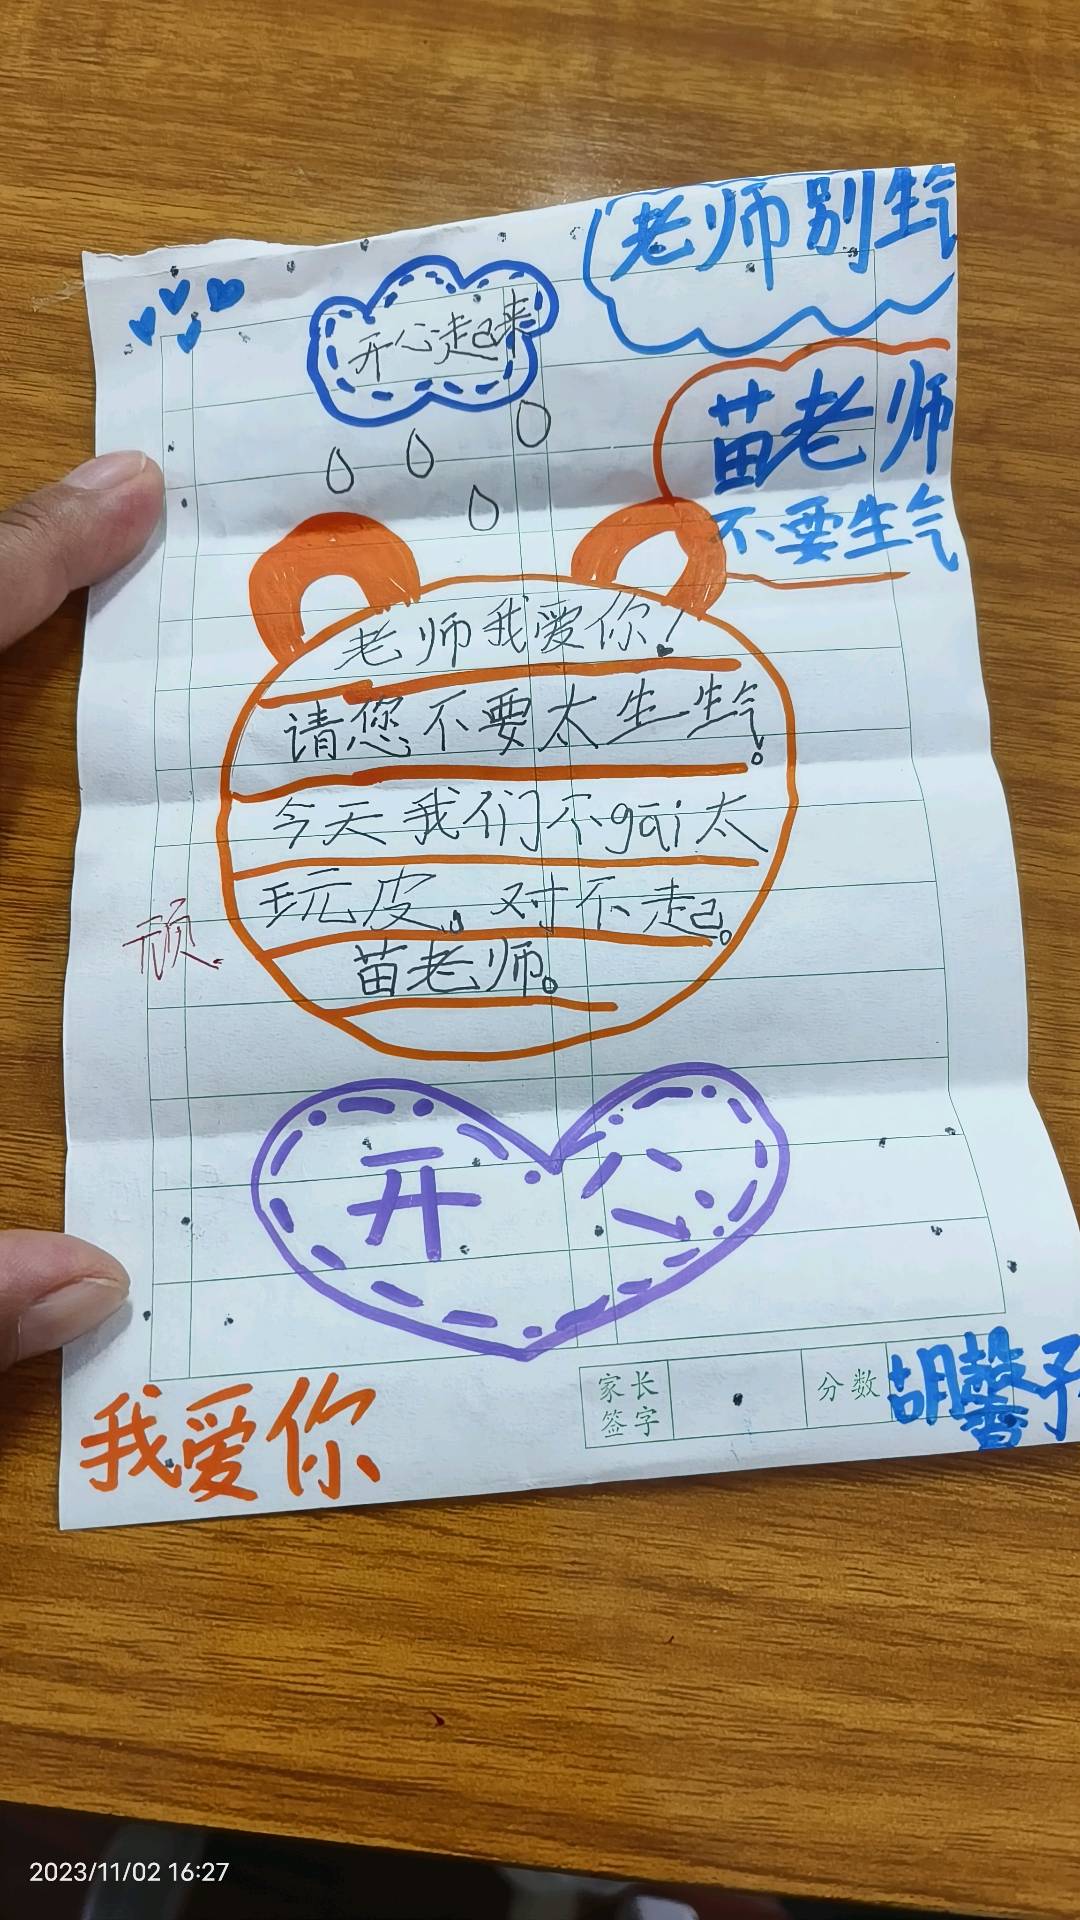 老师别生气
开心起来
苗老师
不要生气
老师我爱你!
请您不要太生生气。
今天我们不gāi太
玩皮。对不起。
顽
苗老师。
开心
家长
签字
分数
胡馨予
我爱你
2023/11/02 16:27